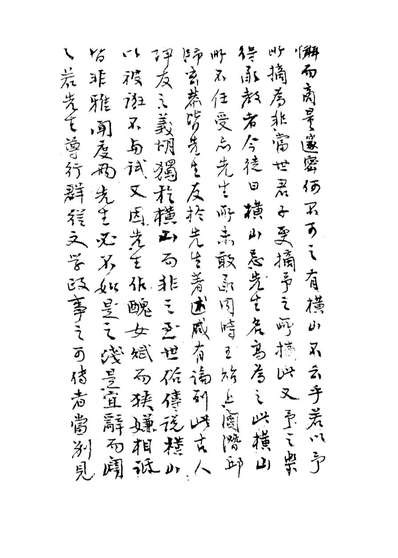 懈而商量邃密何不可之有橫山不云乎若以予
所摘為非當世君子更摘予之所摘此又予之樂
得承教者今徒曰橫山忌先生名高為之此橫山
所不任受忌先生所未敢承同時王 上閻潛邱
師 皆先生友於先生著述咸有論列此古人
諍友之義胡獨於橫山而非之至世俗傳說橫山
以被 不與試又因先生作醜女賦而挾嫌相詆
皆非雅聞度兩先生必不如是之淺是宜辭而闢
之若先生尊行群從文學政事之可傳者當別見